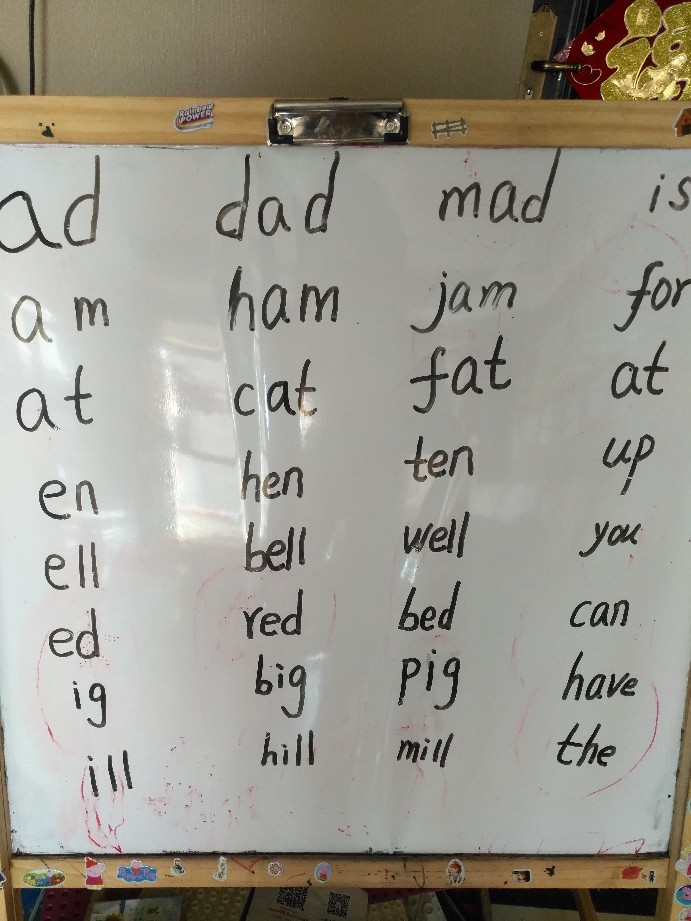 福
Rainbow POWER
ad dad mad is
am ham jam for
at cat fat at
en hen ten up
ell bell well you
ed red bed can
ig big pig have
ill hill mill the